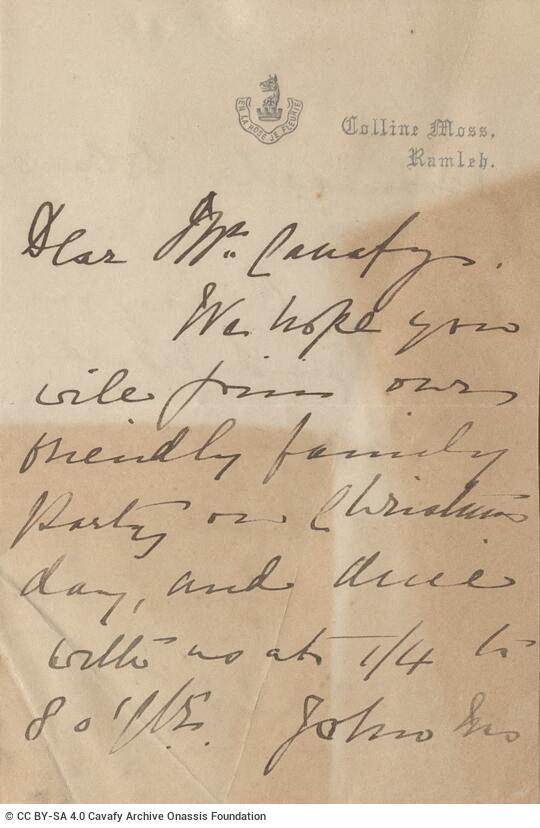 EN LA ROSE JE FLEURIE
Colline Moss,
Ramleh.
Dear Mr. Cavafy.
We hope you
will join our
friendly family
party on Christmas
day, and dine
with us at 1/4 to
8 o'c/k. John
© CC BY-SA 4.0 Cavafy Archive Onassis Foundation